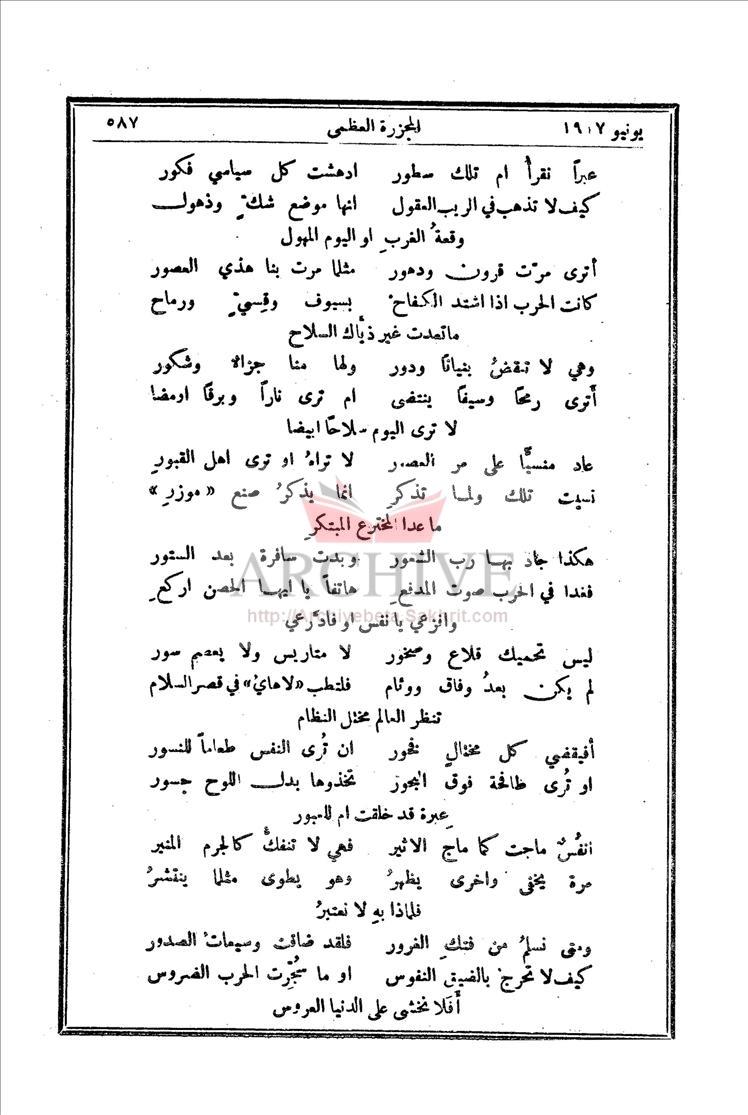 يونيو ١٩٠٧ المجزرة العظمى ٥٨٧
عبراً نقرأ ام تلك سطور ادهشت كل سياسي فكور
كيف لا تذهب في الريب العقول انها موضع شكٍّ وذهول
وقعةُ الغربِ او اليوم المهول
أترى مرّت قرون ودهور مثلما مرت بنا هذي العصور
كانت الحرب اذا اشتد الكفاح بسيوف وقِسيٍّ ورماح
ما تعدت غير ذيّاك السلاح
وهي لا تنقضُ بنيانًا ودور ولها منا جزالا وشكور
أترى رمحًا وسيفًا ينتضى ام ترى ناراً وبرقًا اومضا
لا ترى اليوم سلاحًا ابيضا
عاد منسيًّا على مر العصور لا تراهُ او ترى اهل القبورِ
نسيت تلك ولما تذكرِ انما يذكرُ صنع «موزرِ»
ما عدا المخترع المبتكرِ
هكذا جاد بها رب الشعور وبدت سافرة بعد الستور
فغدا في الحرب صوت المدفعِ هاتفًا يا ايها الحصن اركعِ
وانزعي يا نفس او فادّرعي
ليس تحميك قلاع وصخور لا متاريس ولا يعصم سور
لم يكن بعدُ وفاق ووئام فلتطب «لاهايُ» في قصر السلام
تنظر العالم مختل النظام
أفيقضي كل مختالٍ فخور ان تُرى النفس طعاماً للنسور
او تُرى طافحة فوق البحور تخذوها بدل اللوح جسور
عبرة قد خلقت ام للعبور
انفُسٌ ماجت كما ماج الاثير فهي لا تنفكُّ كالجرم المنير
مرة يخفى واخرى يظهرُ وهو يطوى مثلما ينتشرُ
فلماذا به لا نعتبرُ
ومتى نسلمُ من فتكِ الغرور فلقد ضاقت وسيعاتُ الصدور
كيف لا تحرج بالضيق النفوس او ما سُجِّرت الحرب الضروس
أَفَلا نخشى على الدنيا العروس
ARCHIVE
http://Archivebeta.Sakhrit.com